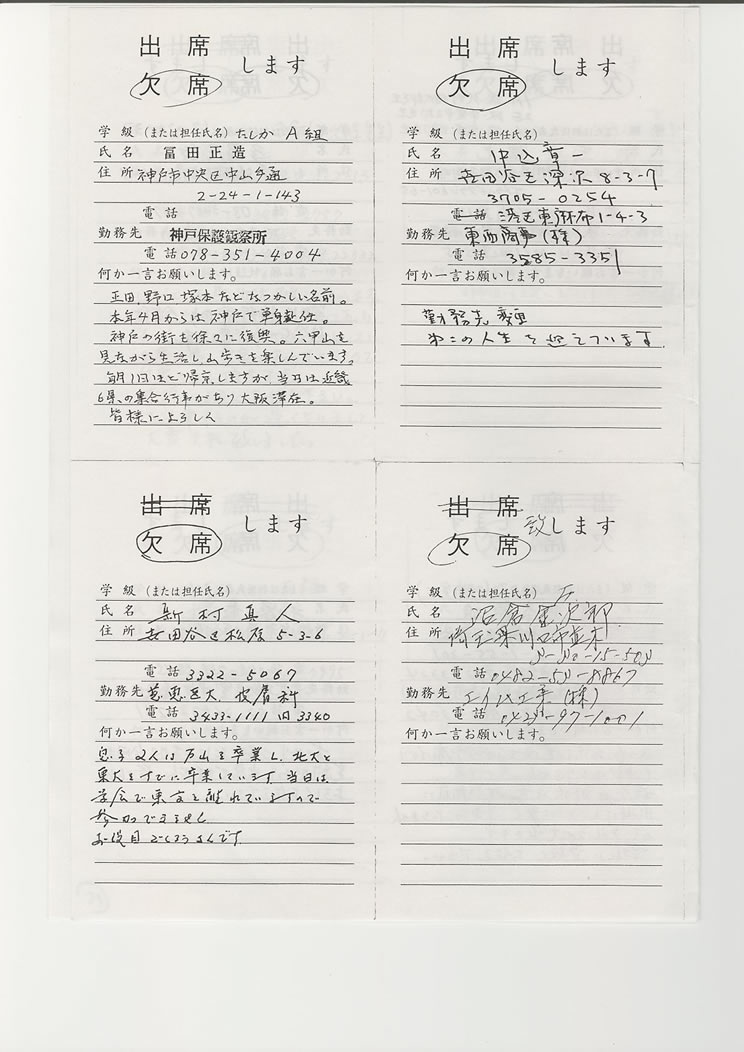 出席
欠席 します
学級 (または担任氏名) たしか A組
氏名 冨田正造
住所 神戸市中央区中山手通
2-24-1-143
電話
勤務先 神戸保護観察所
電話 078-351-4004
何か一言お願いします。
正田、野口 塚本などなつかしい名前。
本年4月からは神戸で単身赴任。
神戸の街も徐々に復興。六甲山を
見ながら生活し山歩きを楽しんでいます。
毎月1回ほど帰京しますが、当日は近畿
6県の集合行事があり大阪滞在。
皆様によろしく
出席
欠席 します
学級 (または担任氏名)
氏名 中込章一
住所 世田谷区深沢 8-3-7
3705-0254
電話 港区東麻布1-4-3
勤務先 東西商事(株)
電話 3585-3351
何か一言お願いします。
勤務先変更
第二の人生を迎えています
出席
欠席 します
学級 (または担任氏名)
氏名 新村真人
住所 世田谷区松原 5-3-6
電話 3322-5067
勤務先 慈恵医大 皮膚科
電話 3433-1111 内 3340
何か一言お願いします。
息子2人は戸山を卒業し、北大と
東大をすでに卒業しています。当日は
学会で東京を離れていますので
参加できません
お役目ごくろうさんです
出席
欠席 致します
学級 (または担任氏名)
氏名 沼倉
住所 埼玉県川口市
電話
勤務先 (株)
電話
何か一言お願いします。